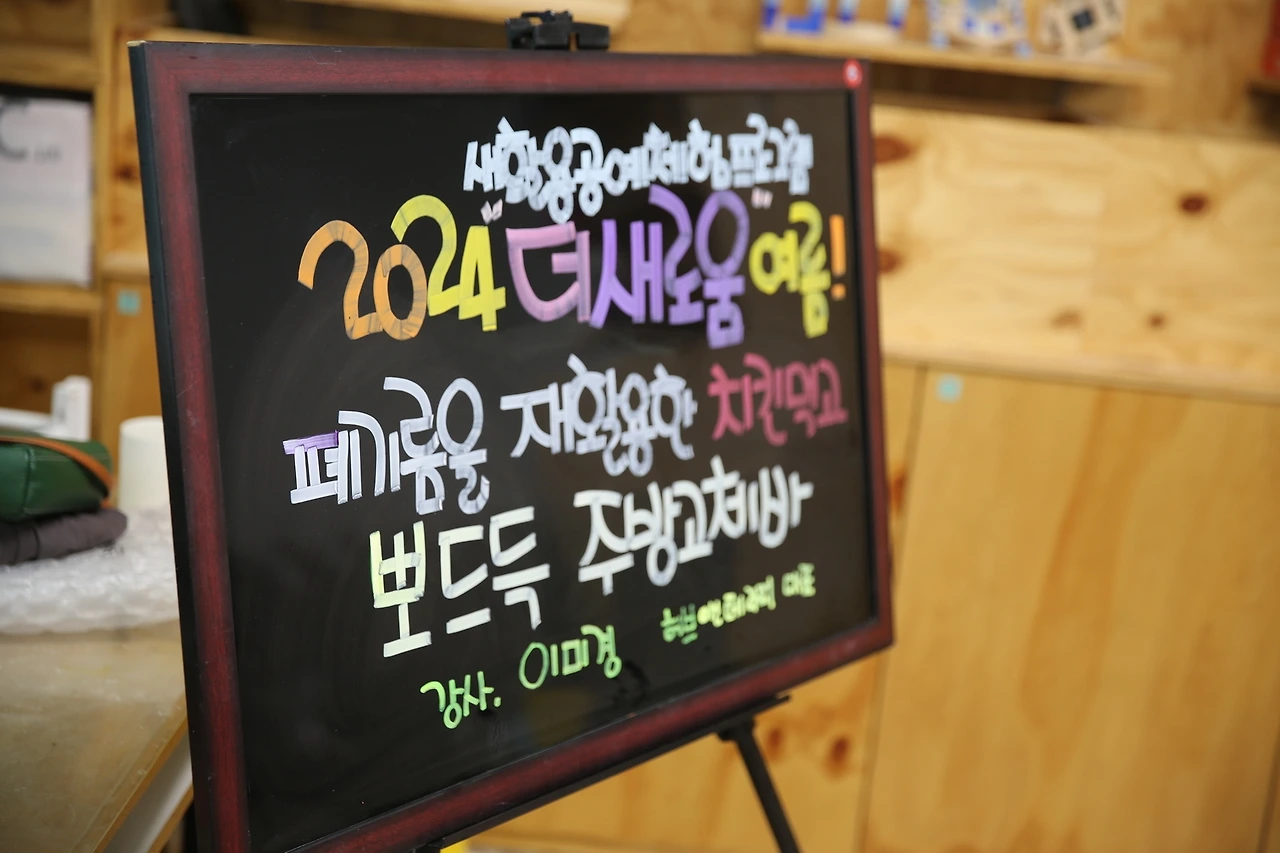 새활용공예체험프로그램
2024 "더새로움" 여름!
폐기름을 재활용한 치킨먹고
뽀드득 주방고체비누
강사. 이미경
허브앤테라피 마포